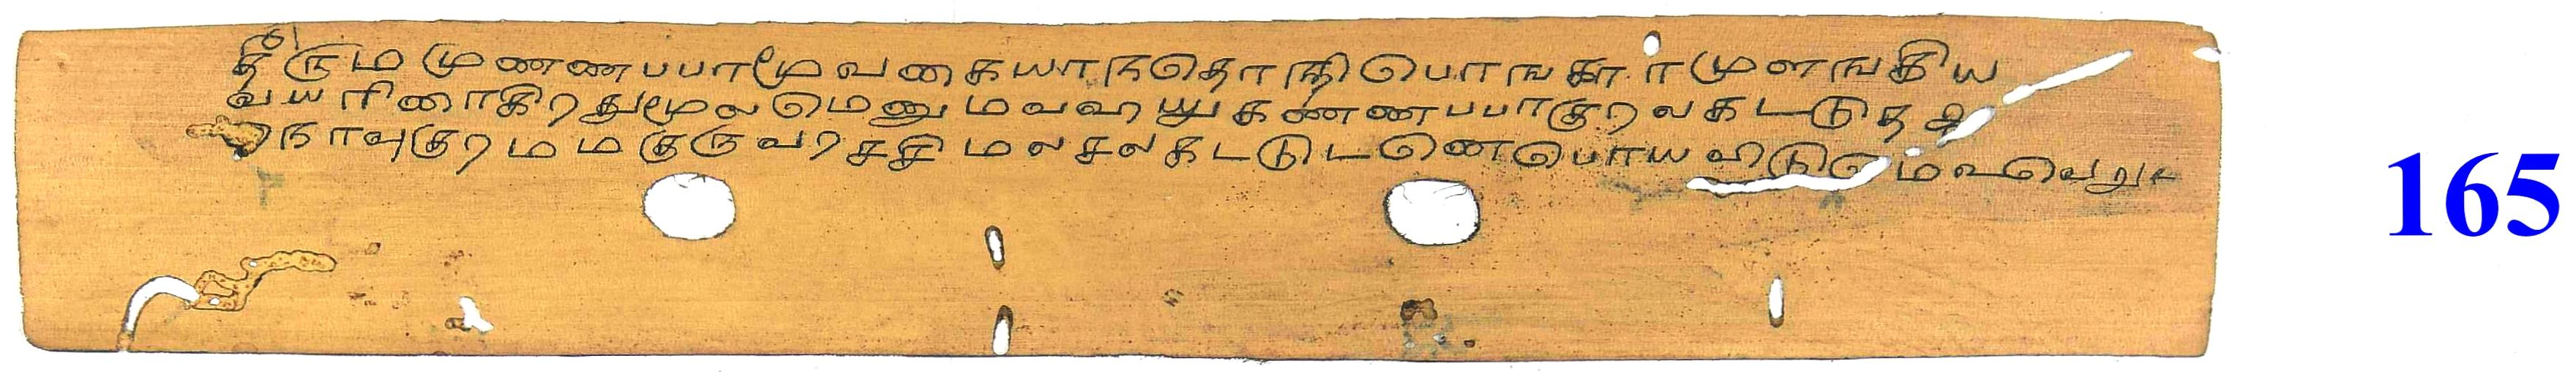 தீருமமுணணபபாமூவகையாநதொநதிபொஙகாரமுளஙகிய
வயாரினாகிரதுமூலமெனுமவவ கணணபபாகுரலகடடுத
நாவுகுரமமகுருவரசசிமலசலகடடுடனெபொயவிடு மவவெறு
165